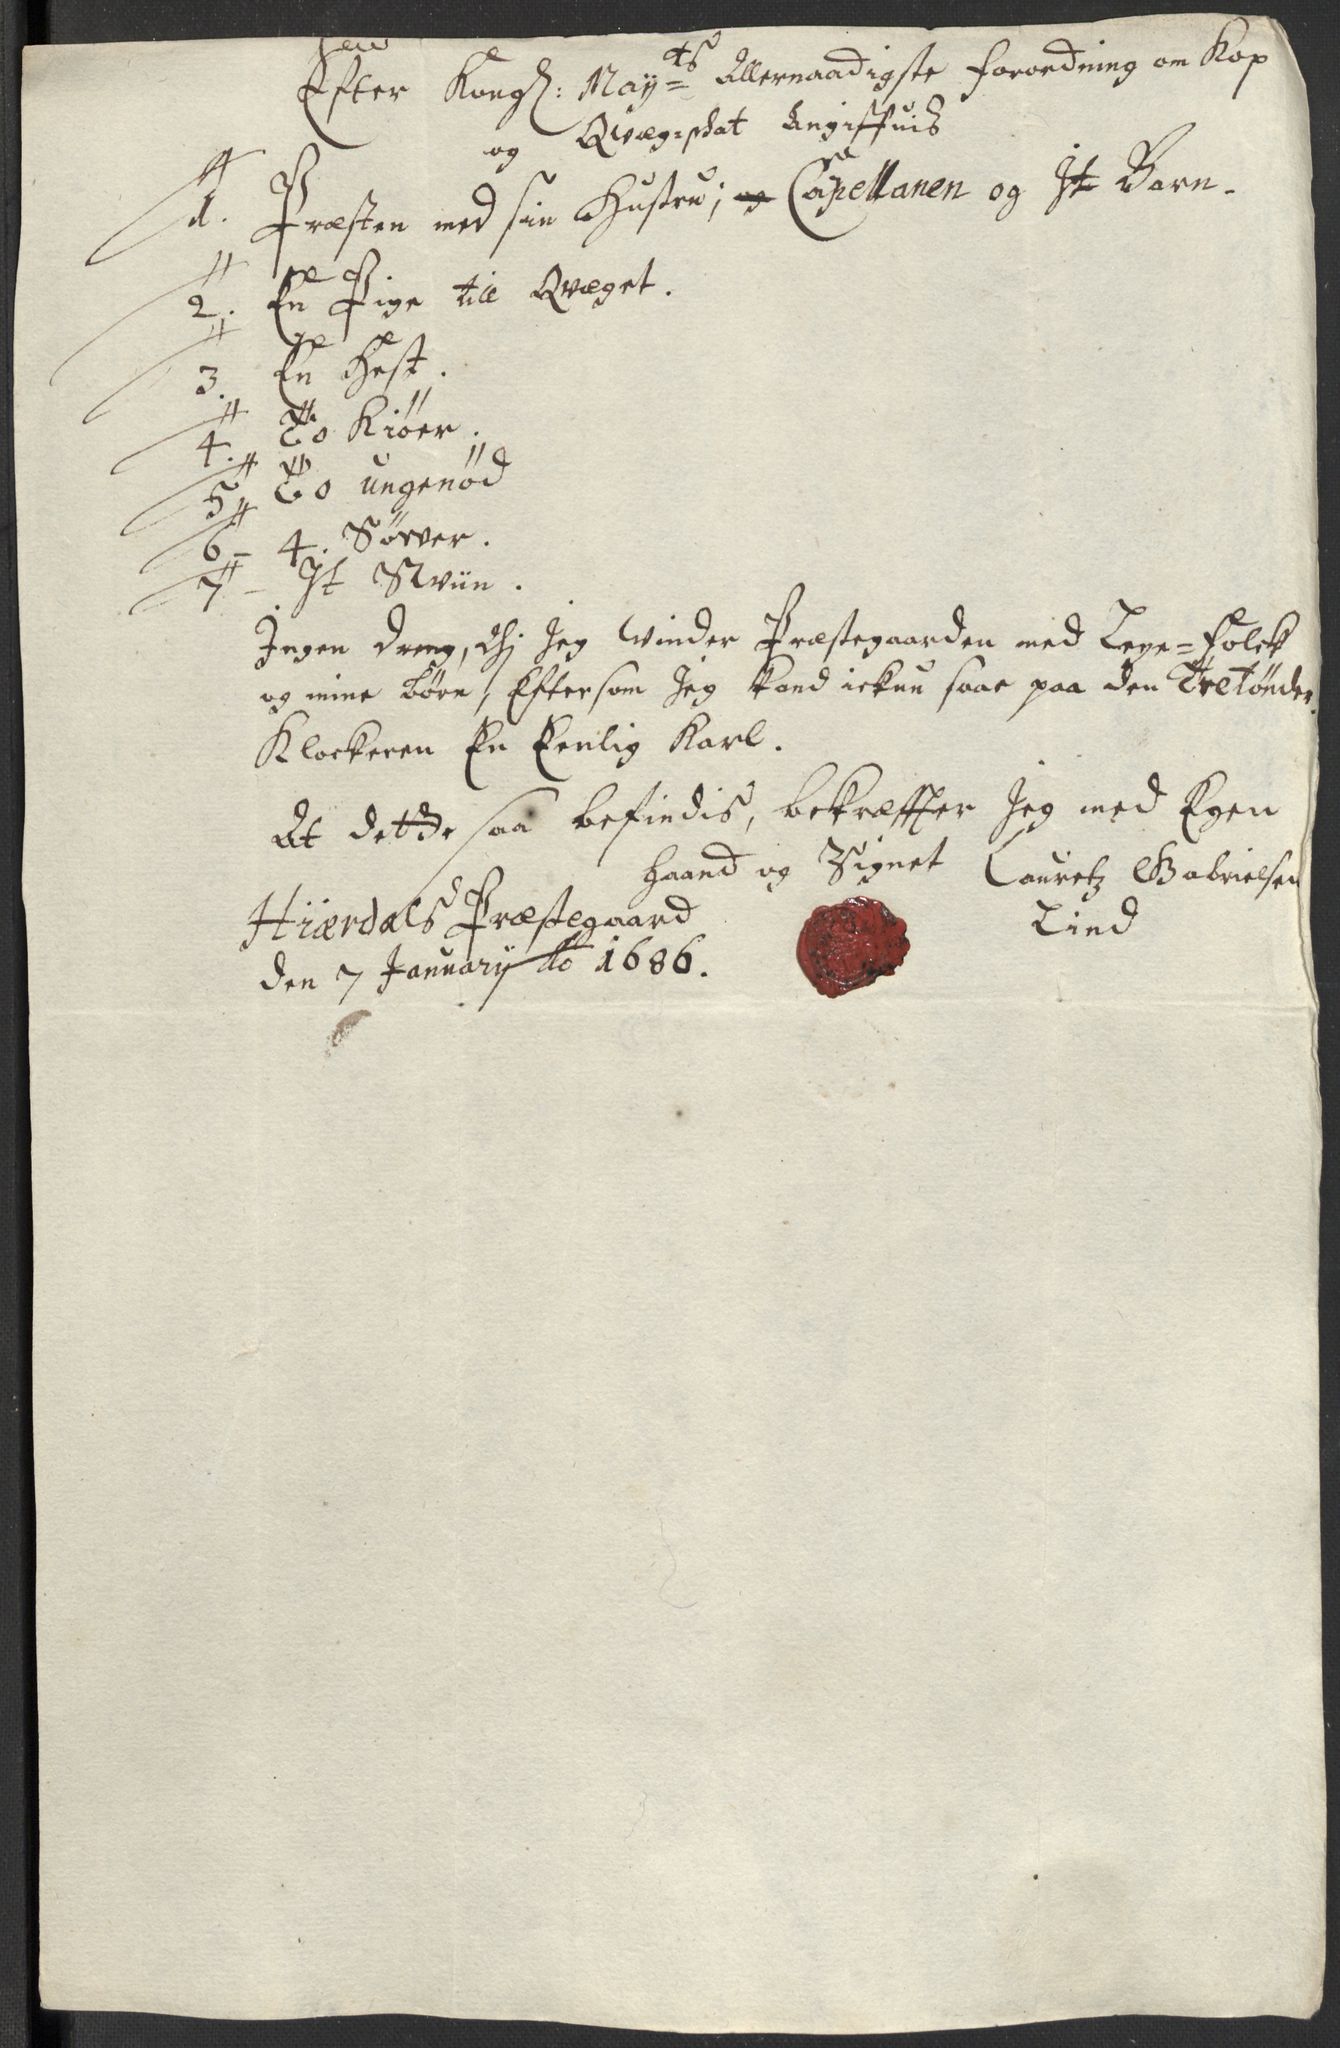 Efter Kongl: May=ts Allernaadigste forordning om Kop
og Qvæg=skat Angiffuis
1. Præsten med sin Hustru, og Capellanen og It Barn.
2. En Pige till Qvæget.
3. En Hest.
4. To Kiöer.
5 To ungenöd
6 - 4. Söwer.
7 - It Swiin.
Ingen dreng, thj Jeg winder Præstegaarden med Leye=folck
og mine börn, Eftersom Jeg kand ickun saae paa den Tretönder.
Klockeren En Eenlig Karl.
At dette saa befindis, bekræffter Jeg med Egen
haand og Signet Lauretz Gabrielsen
Hiærdals Præstegaard Lind
den 7 January Ao 1686.